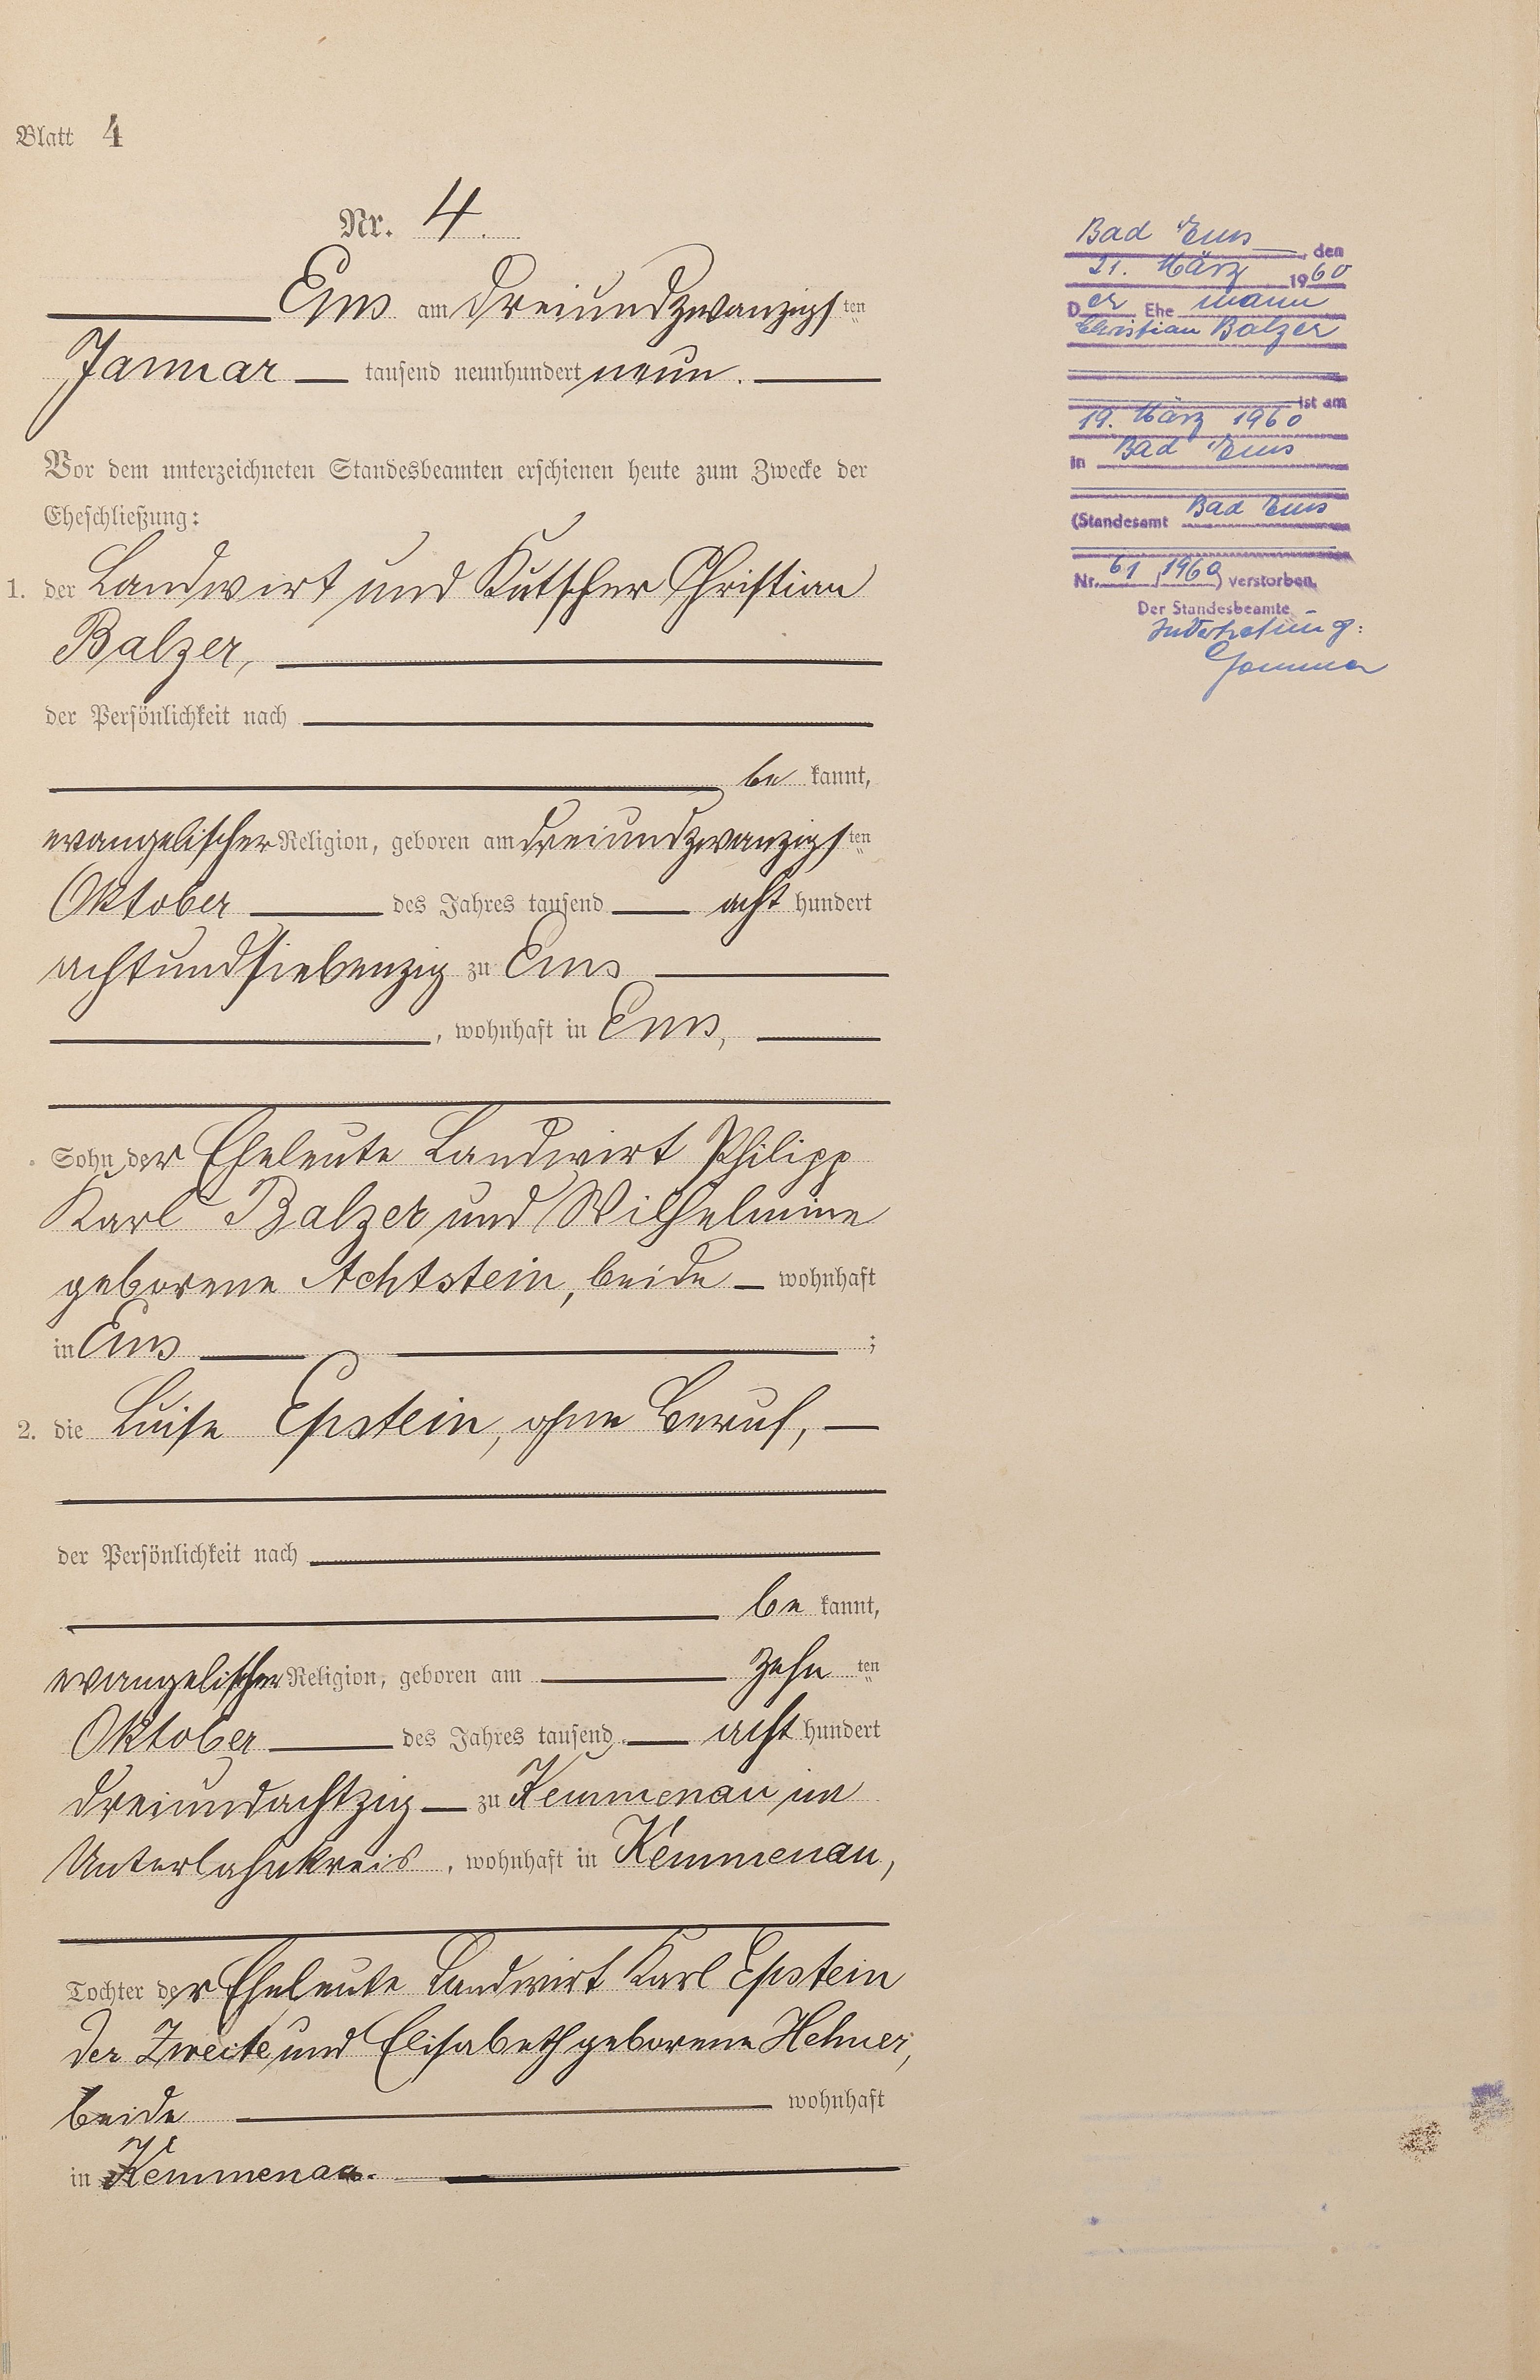 Blatt 4
Nr. 4.
Ems am dreiundzwanzigsten
Januar tausend neunhundert neun.
Vor dem unterzeichneten Standesbeamten erschienen heute zum Zwecke der
Eheschließung:
1. der Landwirt und Kutscher Christian
Balzer,
der Persönlichkeit nach
be kannt,
evangelischer Religion, geboren am dreiundzwanzigsten
Oktober des Jahres tausend acht hundert
achtundsiebenzig zu Ems
, wohnhaft in Ems,
Sohn der Eheleute Landwirt Philipp
Karl Balzer und Wilhelmine
geborene Achtstein, beide wohnhaft
in Ems ;
2. die Luise Epstein, ohne Beruf,
der Persönlichkeit nach
be kannt,
evangelischer Religion, geboren am zehnten
Oktober des Jahres tausend acht hundert
dreiundachtzig zu Kemmenau im
Unterlahnkreis, wohnhaft in Kemmenau,
Tochter der Eheleute Landwirt Karl Epstein
der Zweite und Elisabeth geborene Hehner,
beide wohnhaft
in Kemmenau.
Bad Ems, den
21. März 1960
Der Ehemann
Christian Balzer
ist am
19. März 1960
in Bad Ems
(Standesamt Bad Ems
Nr. 61/1960) verstorben.
Der Standesbeamte
In Vertretung: